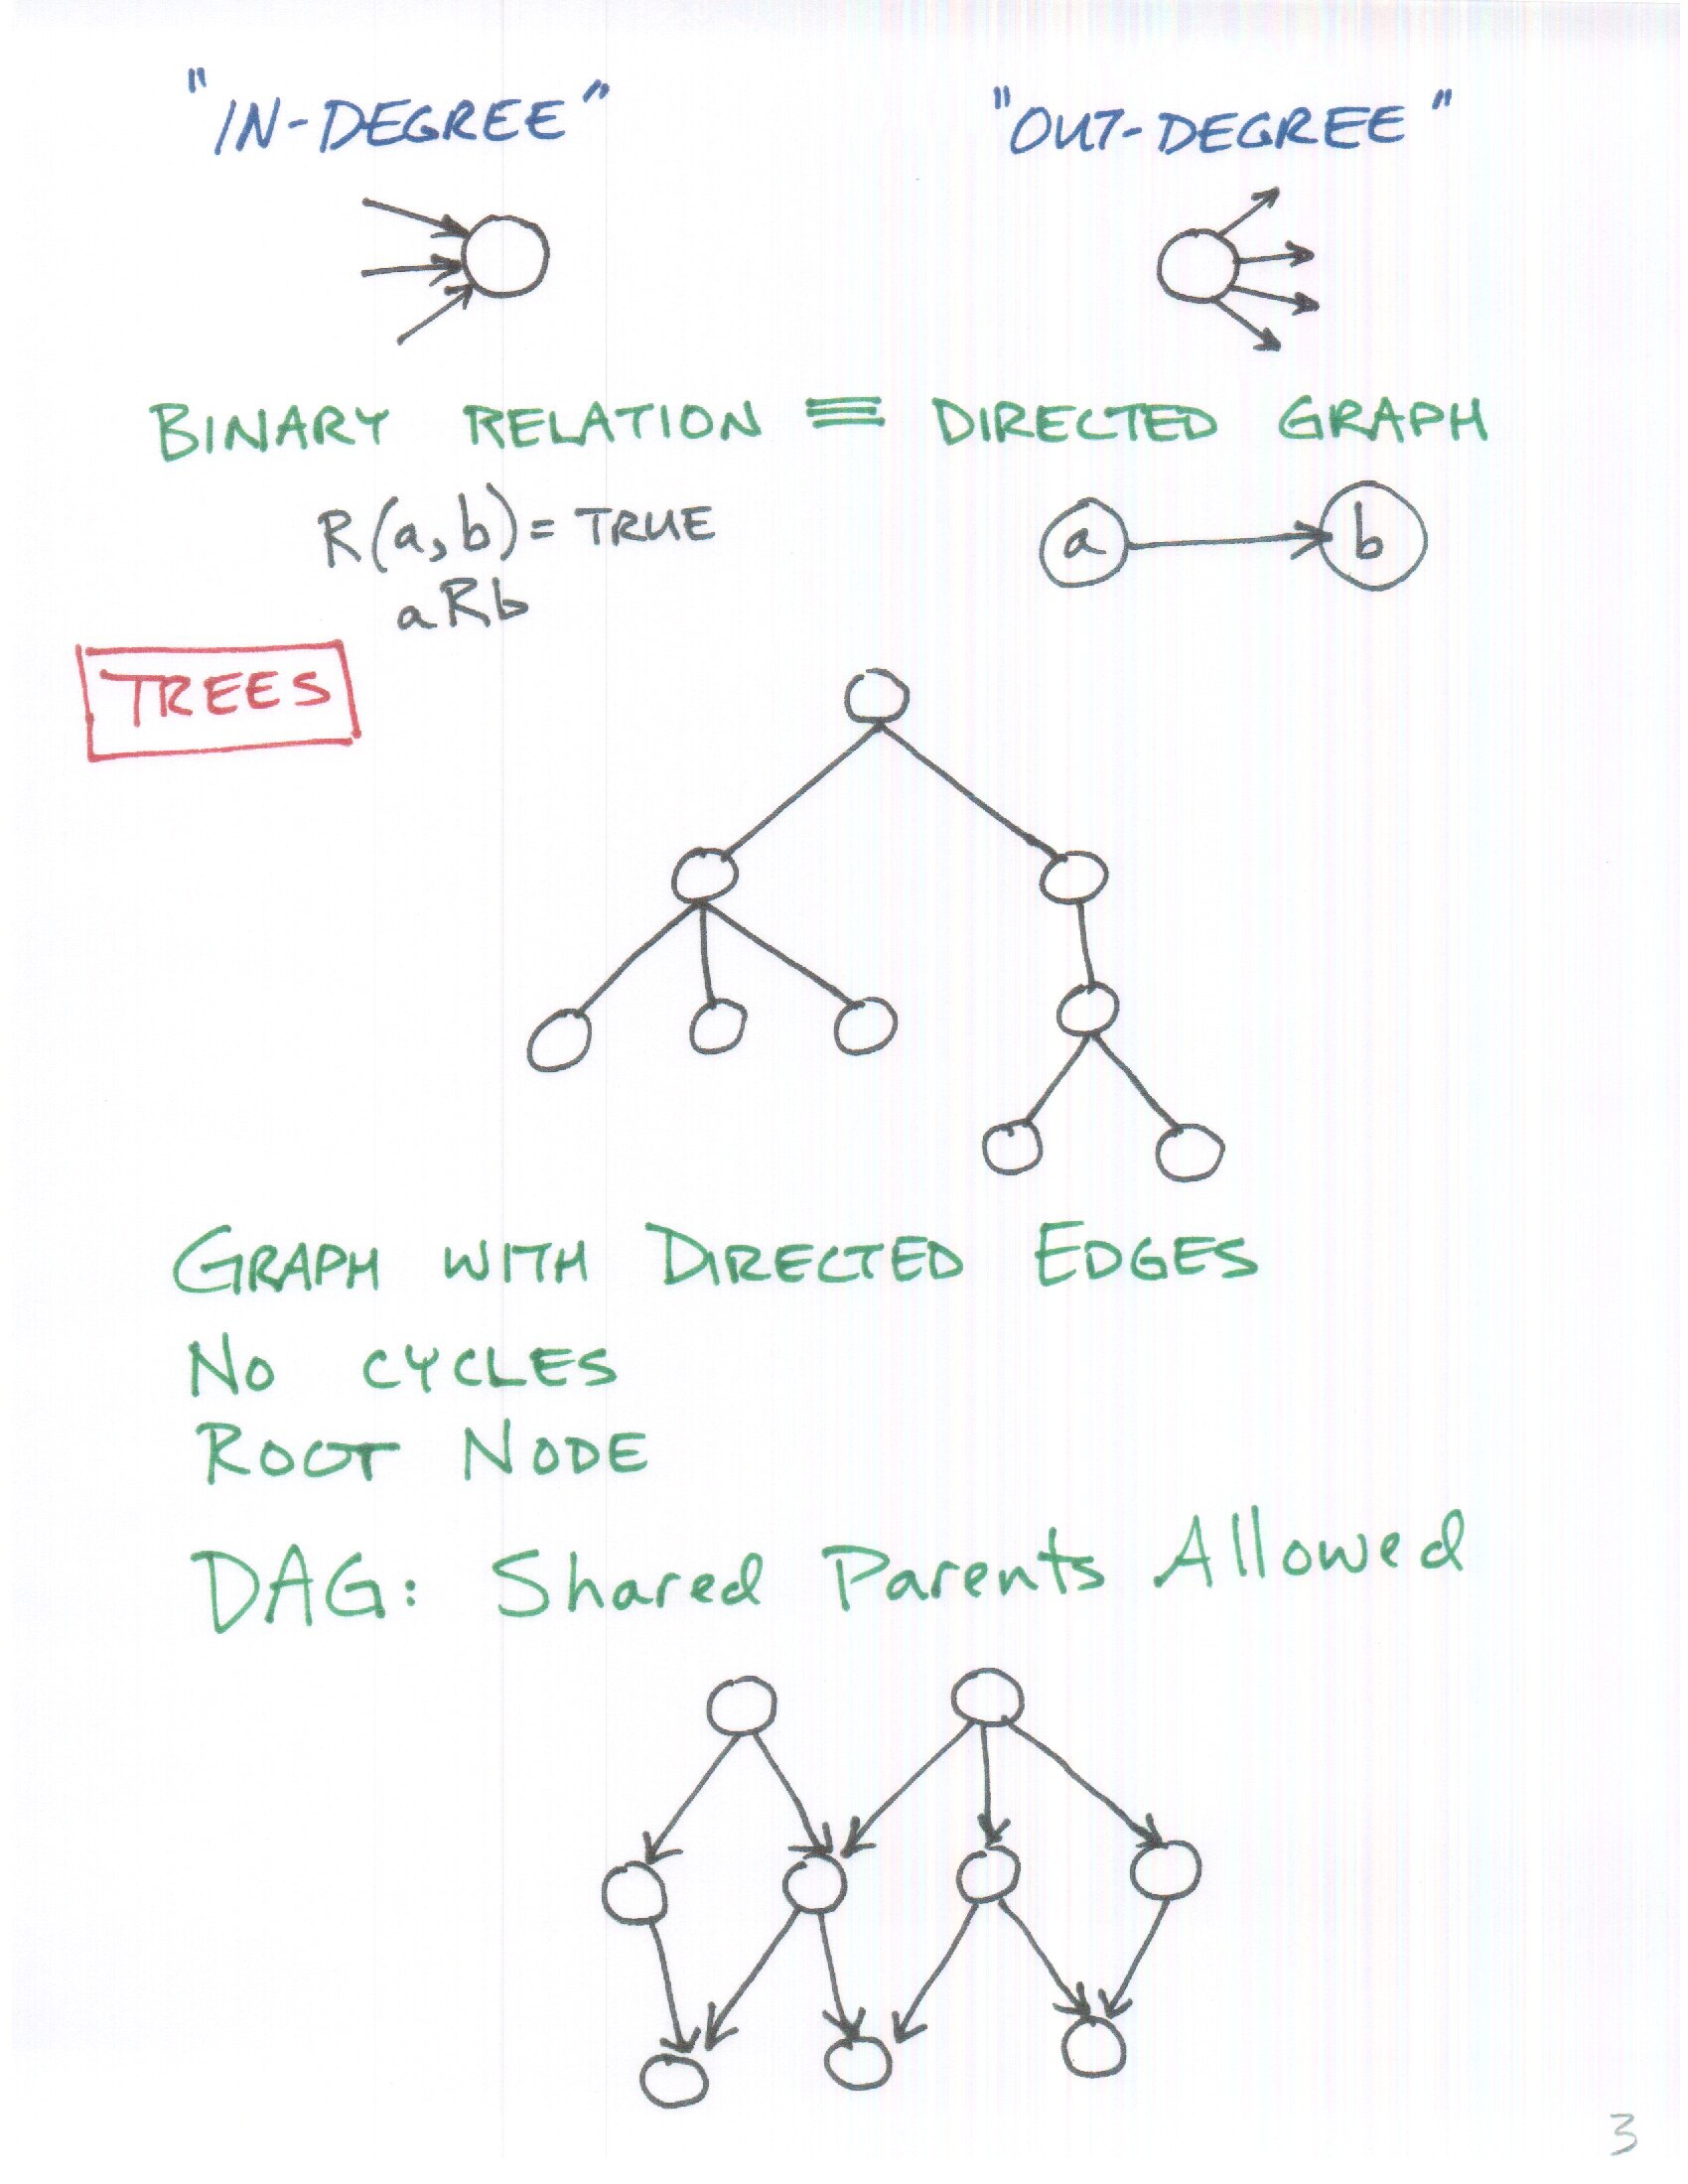 "IN-DEGREE" "OUT-DEGREE"
BINARY RELATION ≡ DIRECTED GRAPH
R(a,b) = TRUE a b
aRb
TREES
GRAPH WITH DIRECTED EDGES
NO CYCLES
ROOT NODE
DAG: Shared Parents Allowed
3